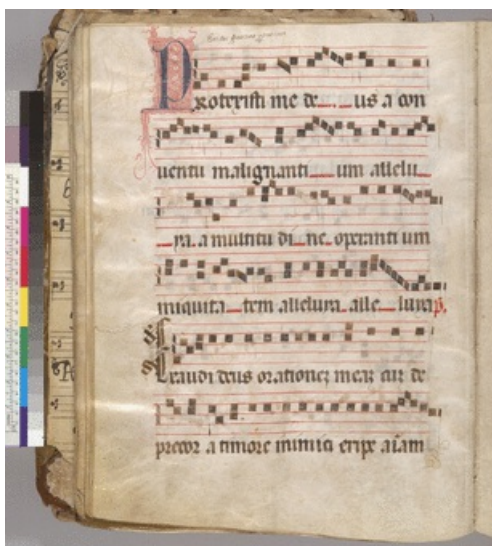 Protexisti me de us a con
uentu malignanti um allelu
ya. a multitu di ne operanti um
iniquita tem alleluya alle luya p̄.
Exaudi deus orationeʒ meaʒ cuʒ de
precor a timore inimici eripe aīam